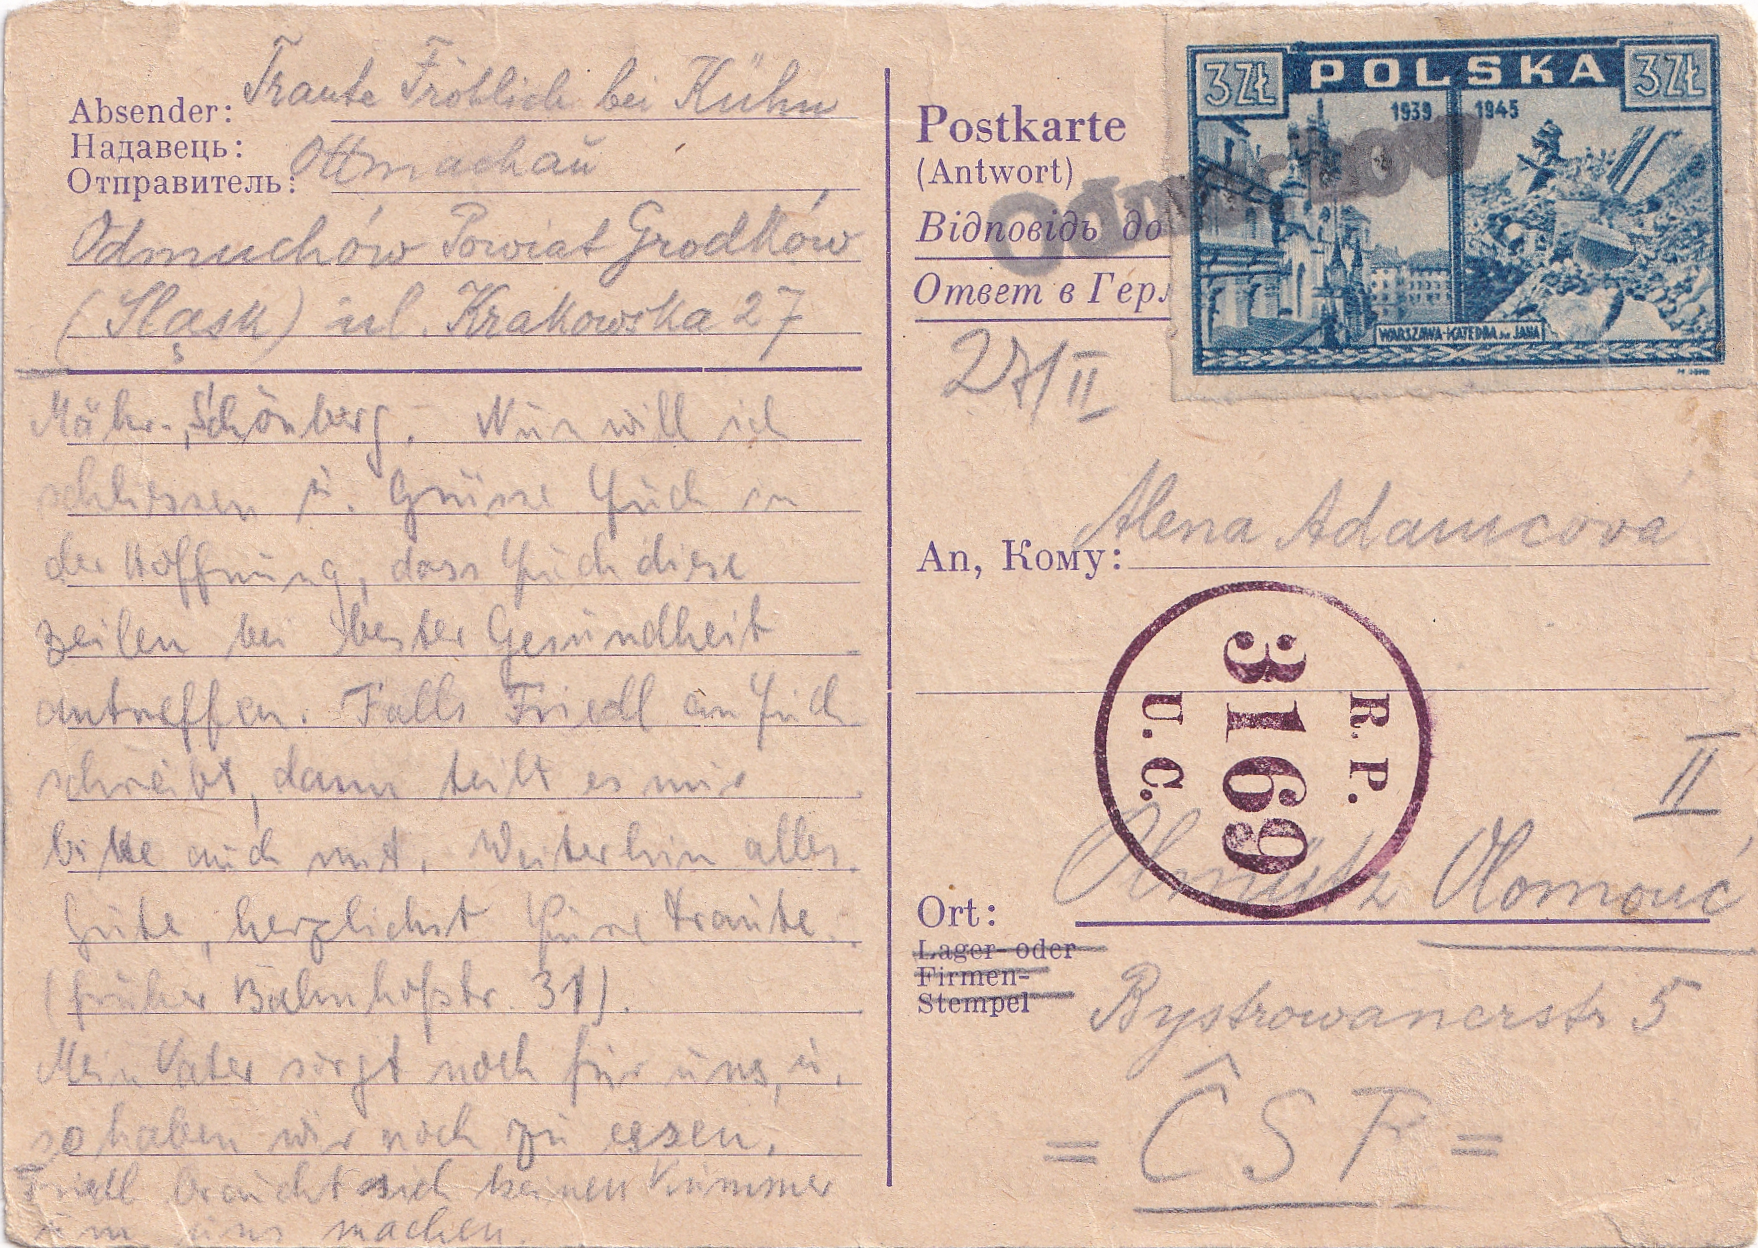 Absender: Traute Fröhlich bei Kühn
Надавець: Ottmachau
Отправитель:
Odmuchów Powiat Grodków
(Sląsk) ul. Krakowska 27
Mähr.-Schönberg. Nun will ich
schliessen u. Grüsse Euch in
der Hoffnung, dass Euch diese
Zeilen bei bester Gesundheit
antreffen. Falls Friedl an Euch
schreibt, dann teilt es mir
bitte auch mit. Weiterhin alles
Gute, herzlichst Eure Traute.
(früher Bahnhofstr. 31).
Mein Vater sorgt noch für uns, u.
so haben wir noch zu essen.
Friedl braucht sich keinen Kummer
um uns machen.
Postkarte
(Antwort)
Відповідь до
Ответ в Гер
POLSKA
3ZŁ 3ZŁ
1939 1945
WARSZAWA-KATEDRA św. JANA
27/II
An, Кому: Alena Adamcová
R. P.
3169
U. C.
II
Ort: Olmütz Olomouc
Lager- oder
Firmen-
Stempel
Bystrowanerstr 5
= ČSR =